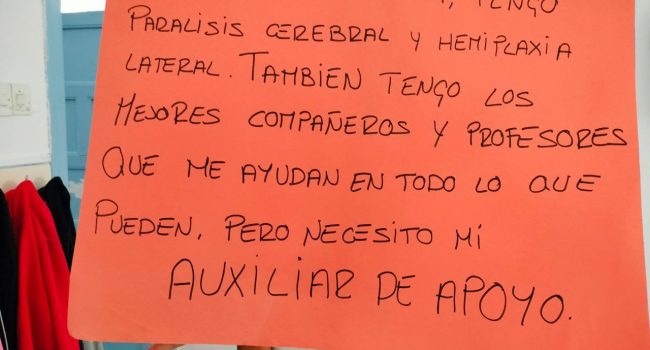 , TENGO
PARALISIS CEREBRAL Y HEMIPLAXIA
LATERAL. TAMBIEN TENGO LOS
MEJORES COMPAÑEROS Y PROFESORES
QUE ME AYUDAN EN TODO LO QUE
PUEDEN, PERO NECESITO MI
AUXILIAR DE APOYO.